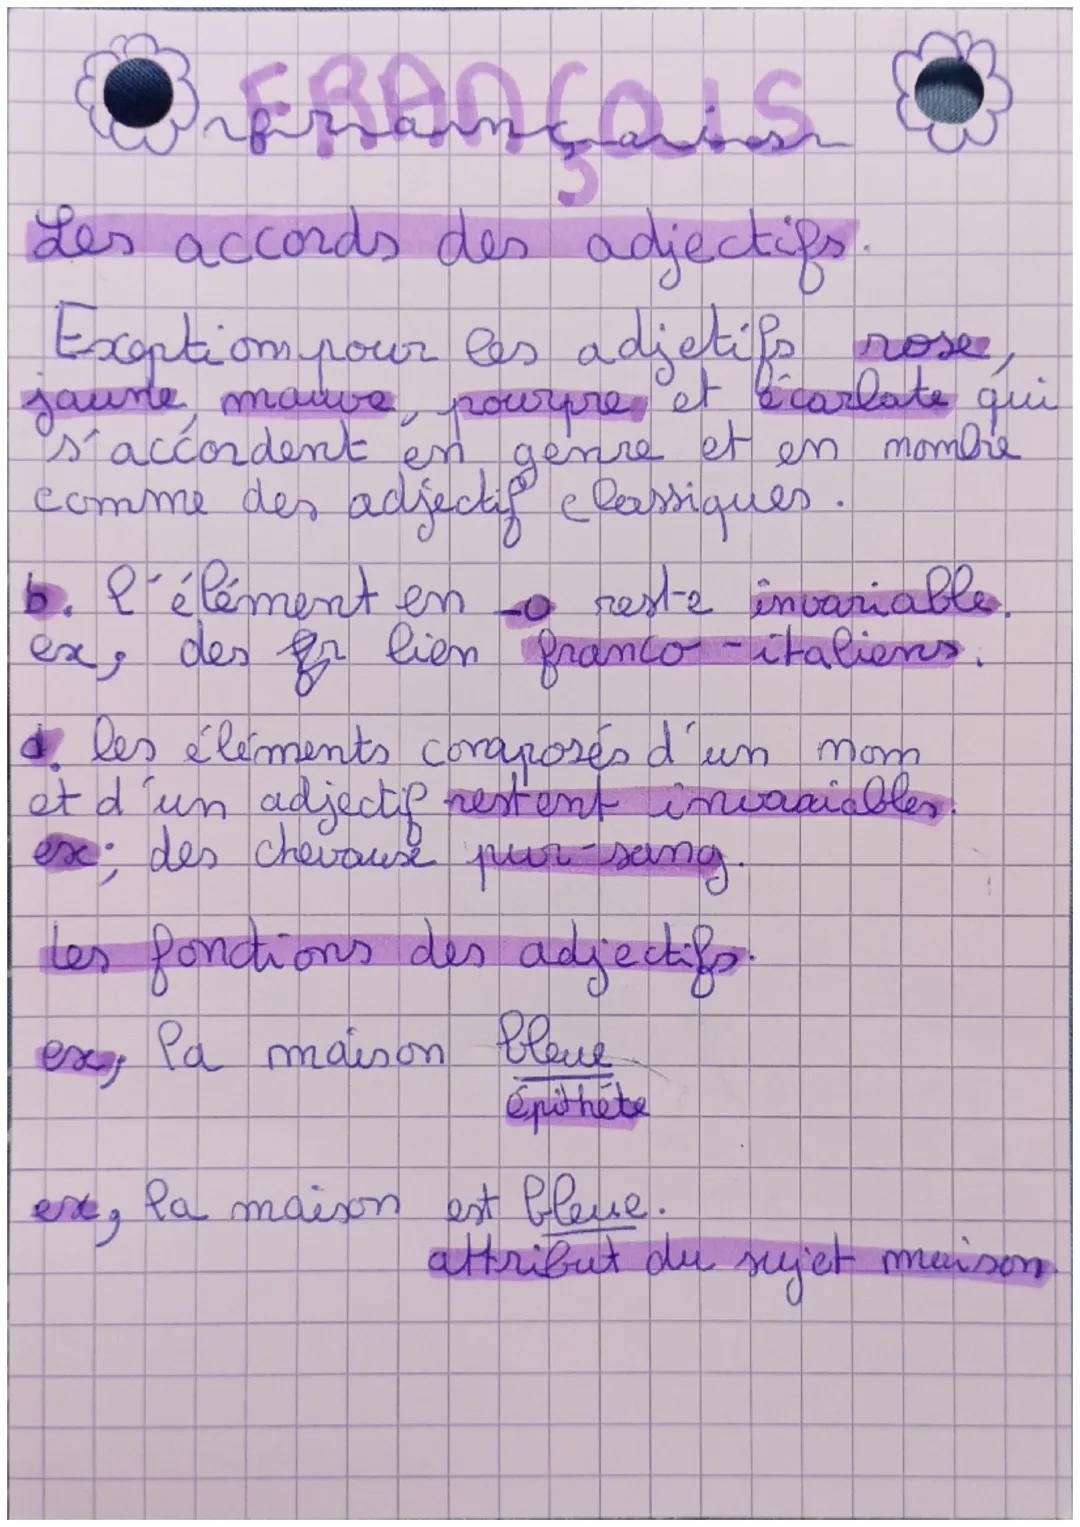 FRANÇAIS
français
Les accords des adjectifs.
Exeption pour les adjetifs rose,
jaune, mauve, pourpre et écarlate qui
s'accordent en genre et en nombre
comme des adjectif classiques.
b. l'élément en -o reste invariable.
ex, des fr lien franco-italiens.
d. les éléments composés d'un nom
et d'un adjectif restent invariables.
ex; des chevaux pur-sang.
Les fonctions des adjectifs.
ex, la maison bleue
épithète
ex, la maison est bleue.
attribut du sujet maison